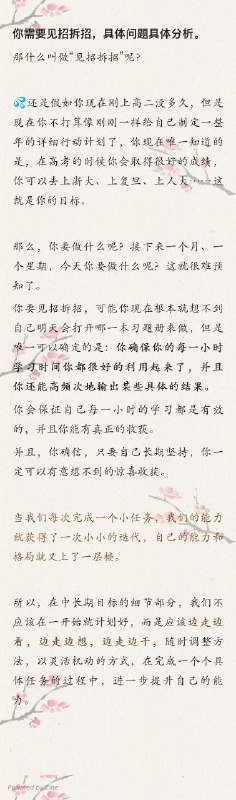 你需要见招拆招，具体问题具体分析。
那什么叫做“见招拆招”呢？
💦还是假如你现在刚上高二没多久，但是
现在你不打算像刚刚一样给自己制定一整
年的详细行动计划了，你现在唯一知道的
是，在高考的时候你会取得很好的成绩，
你可以去上浙大、上复旦、上人大……这
就是你的目标。
那么，你要做什么呢？接下来一个月、一
个星期，今天你要做什么呢？这就很难预
知了。
你要见招拆招，可能你现在根本就想不到
自己明天会打开哪一本习题册来做，但是
唯一可以确定的是：你确保你的每一小时
学习时间你都很好的利用起来了，并且
你还能高频次地输出某些具体的结果。
你会保证自己每一小时的学习都是有效
的，并且你能有真正的收获。
并且，你确信，只要自己长期坚持，你一
定可以有意想不到的惊喜收获。
当我们每次完成一个小任务，我们的能力
就获得了一次小小的迭代，自己的能力和
格局就又上了一层楼。
所以，在中长期目标的细节部分，我们不
应该在一开始就计划好，而是应该边走边
看，边走边想，边走边干，随时调整方
法，以灵活机动的方式，在完成一个个具
体任务的过程中，进一步提升自己的能
力。